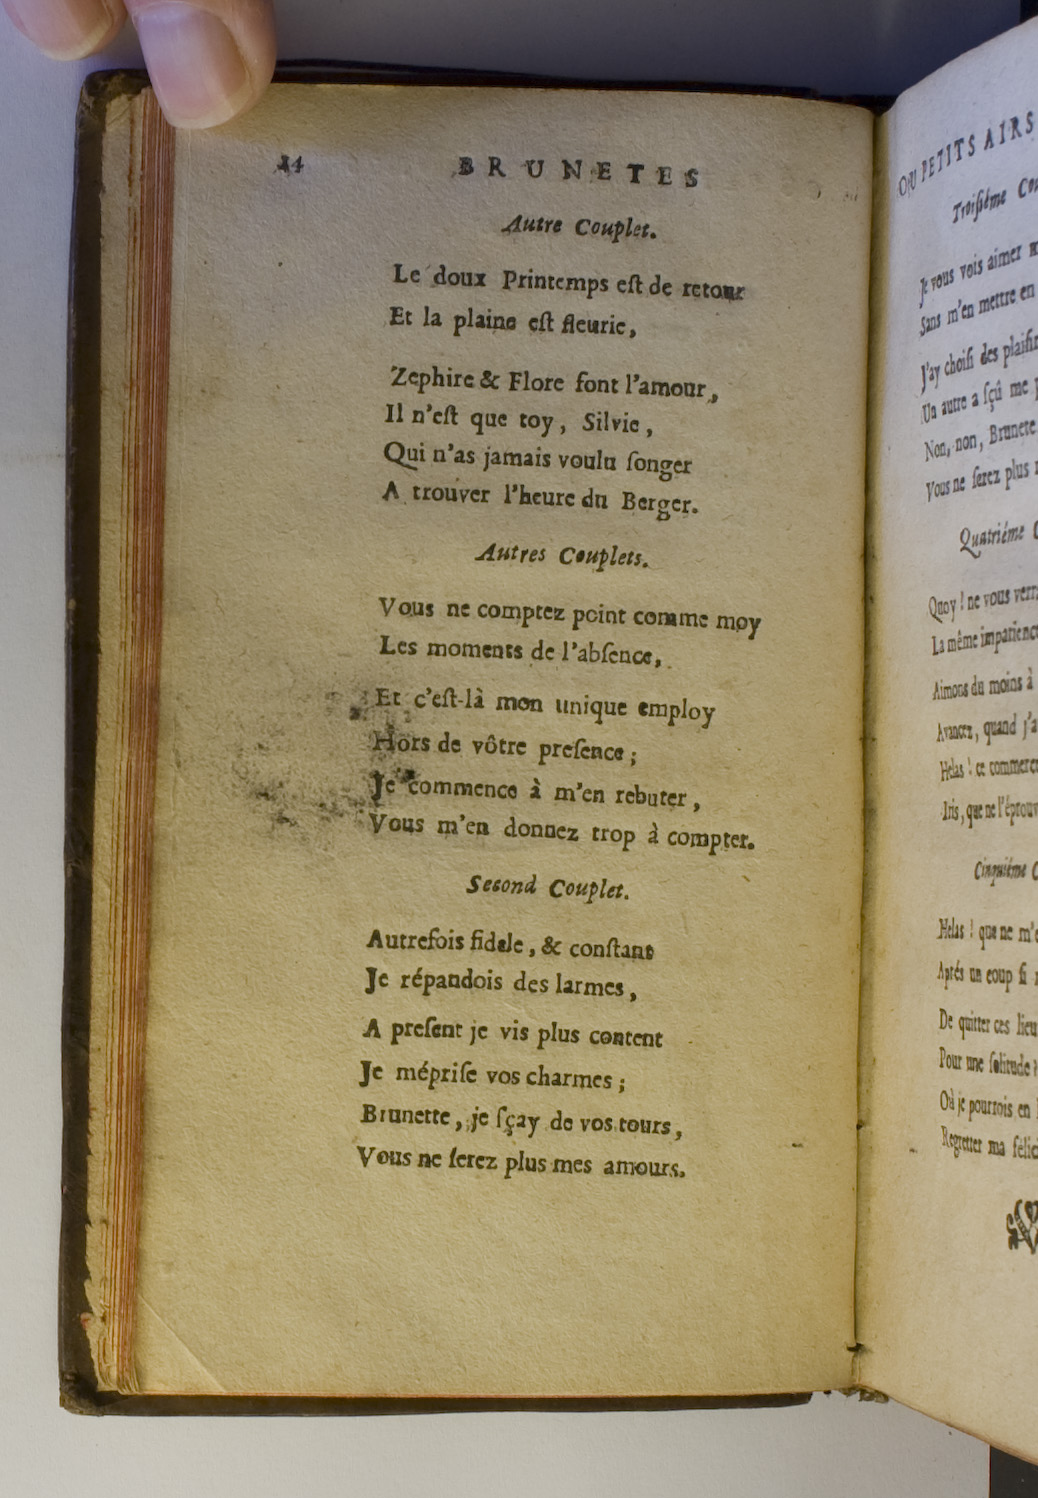 14 BRUNETES
Autre Couplet.
Le doux Printemps eſt de retour
Et la plaine eſt fleurie,
Zephire & Flore font l'amour,
Il n'eſt que toy, Silvie,
Qui n'as jamais voulu ſonger
A trouver l'heure du Berger.
Autres Couplets.
Vous ne comptez point comme moy
Les moments de l'abſence,
Et c'eſt-là mon unique employ
Hors de vôtre preſence;
Je commence à m'en rebuter,
Vous m'en donnez trop à compter.
Second Couplet.
Autrefois fidele, & conſtant
Je répandois des larmes,
A preſent je vis plus content
Je mépriſe vos charmes;
Brunette, je ſçay de vos tours,
Vous ne ſerez plus mes amours.
OU PETITS AIRS
Troiſiéme
Je vous vois aimer
Sans m'en mettre en
J'ay choiſi des
Un autre a ſçû me
Non, non, Brunete
Vous ne ſerez plus
Quatriéme
Quoy! ne vous
La même
Aimons du moins à
Avancez, quand
Helas! ce
Iris, que ne
Cinquiéme
Helas! que ne
Aprés un coup ſi
De quitter ces
Pour une ſolitude
Où je pourrois en
Regretter ma